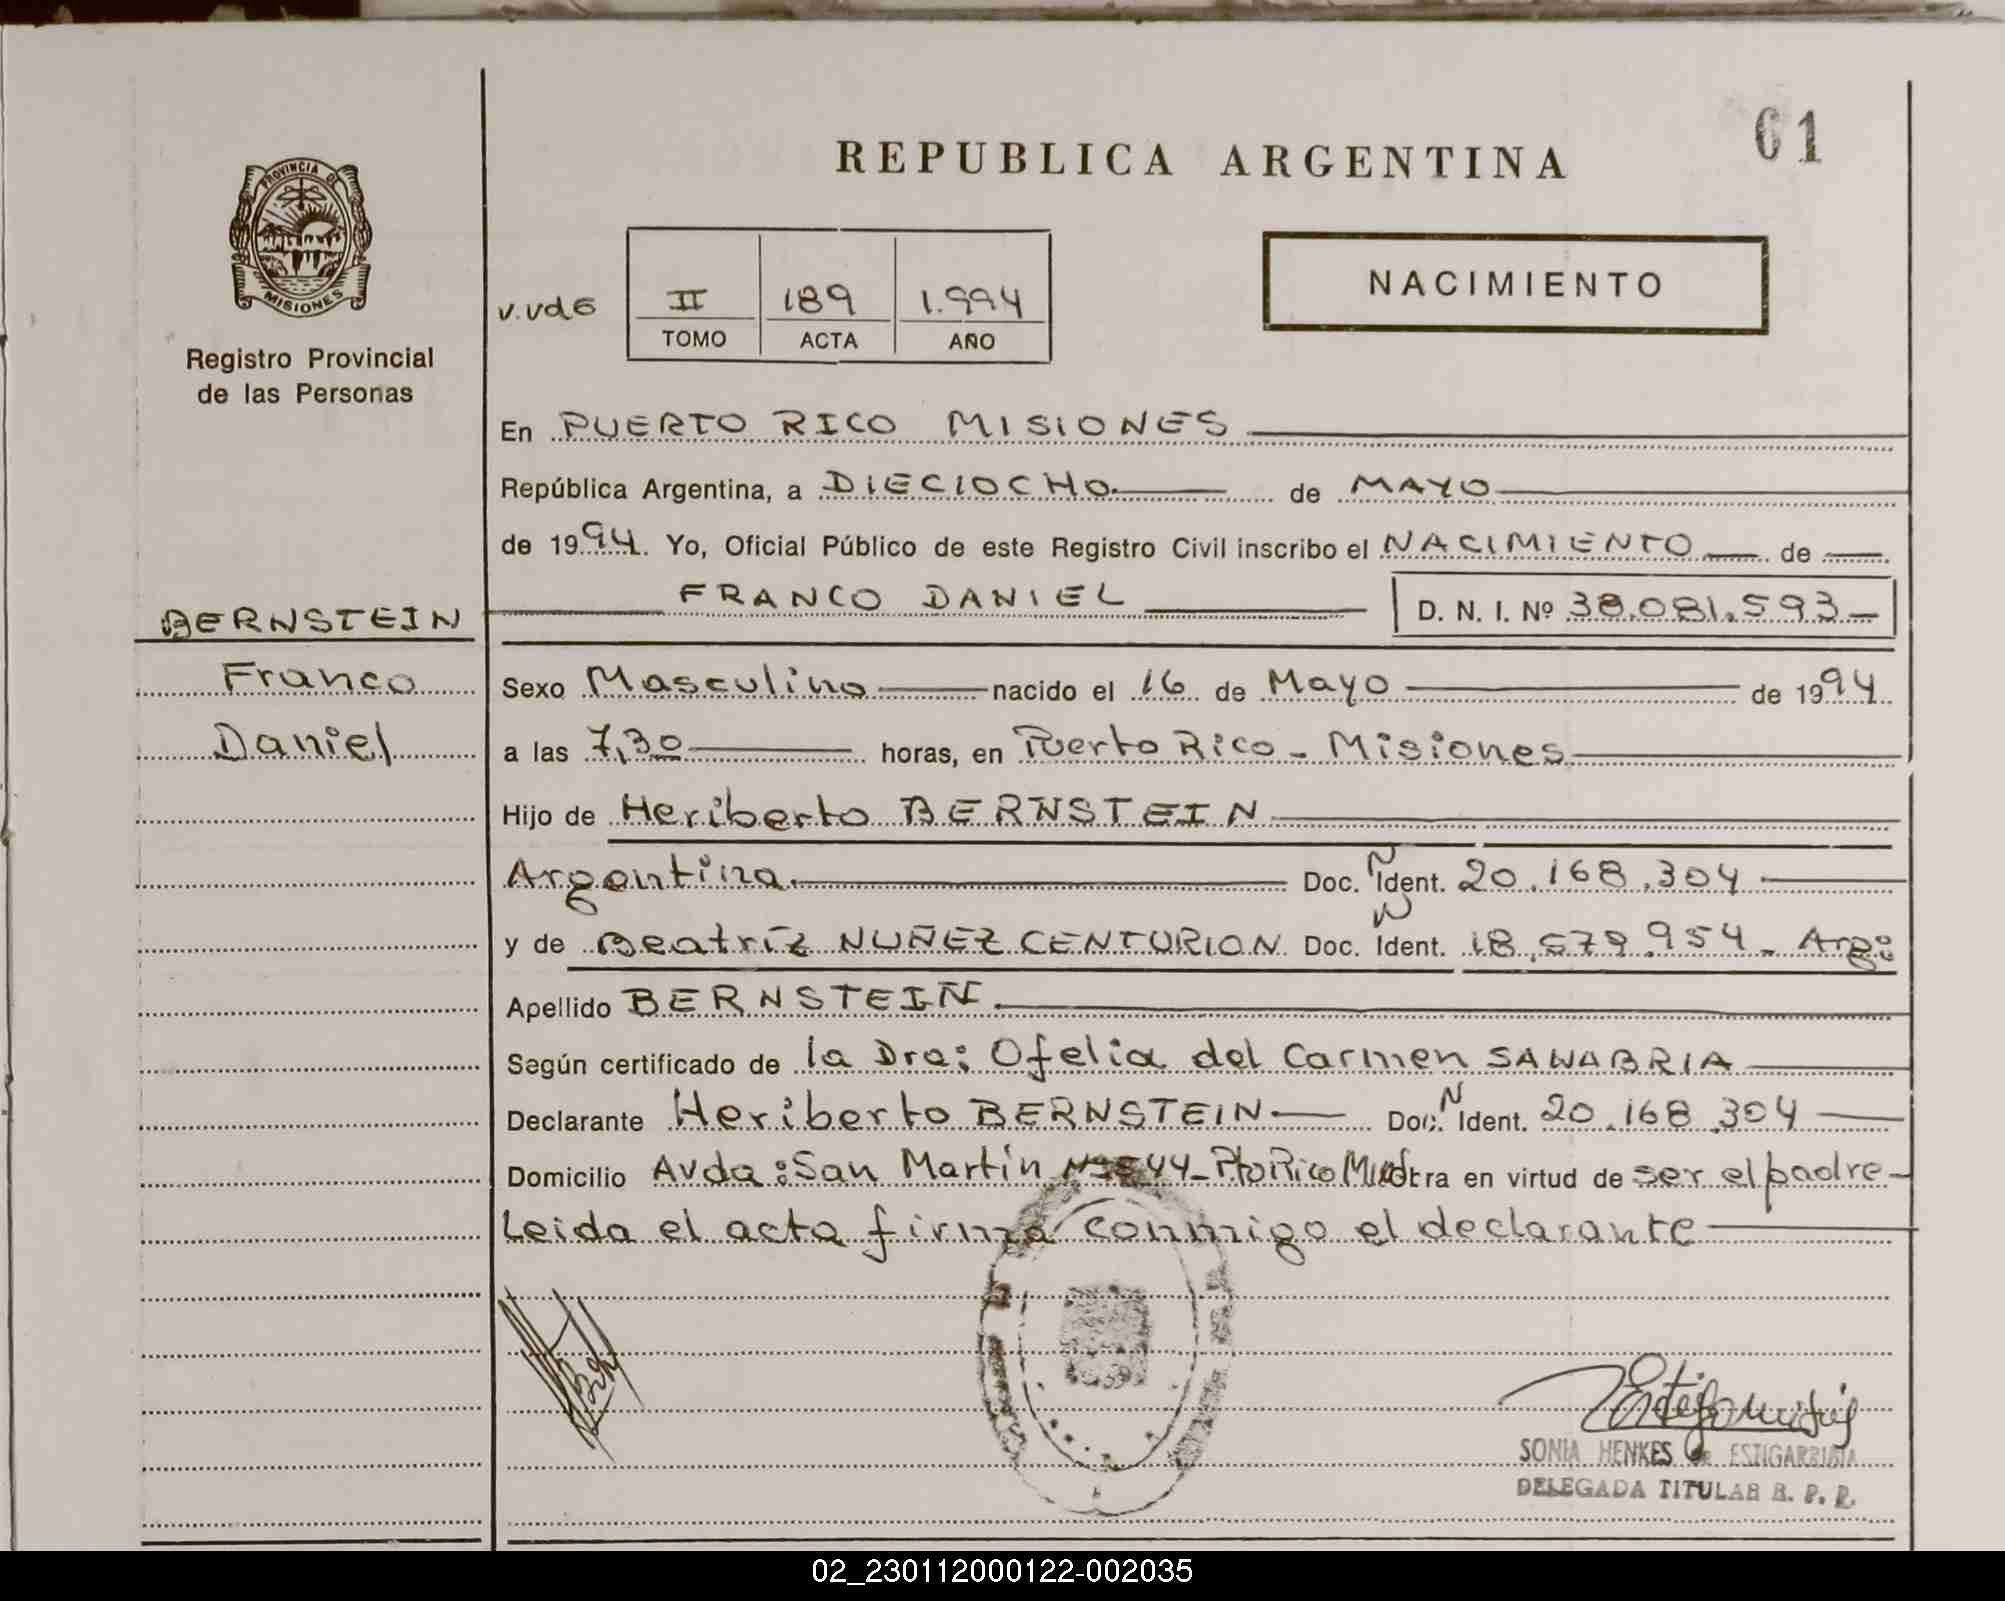 REPUBLICA ARGENTINA
61
PROVINCIA DE
MISIONES
Registro Provincial
de las Personas
II 189 1.994
TOMO ACTA AÑO
NACIMIENTO
En PUERTO RICO MISIONES
República Argentina, a DIECIOCHO de MAYO
de 1994. Yo, Oficial Público de este Registro Civil inscribo el NACIMIENTO de
FRANCO DANIEL D. N. I. Nº 38.081.593
BERNSTEIN
Franco
Daniel
Sexo Masculino nacido el 16 de Mayo de 1994
a las 7,30 horas, en Puerto Rico - Misiones
Hijo de Heriberto BERNSTEIN
Argentina. Doc. N Ident. 20.168.304
y de Beatríz NUÑEZ CENTURION Doc. N Ident. 18.579.954 - Arg:
Apellido BERNSTEIN
Según certificado de la Dra: Ofelia del Carmen SANABRIA
Declarante Heriberto BERNSTEIN Doc. N Ident. 20.168.304
Domicilio Avda: San Martín Nº 544 - Pto Rico en virtud de ser el padre
Leida el acta firma conmigo el declarante
SONIA HENKES de ESTIGARRIBIA
DELEGADA TITULAR R. P. P.
02_230112000122-002035